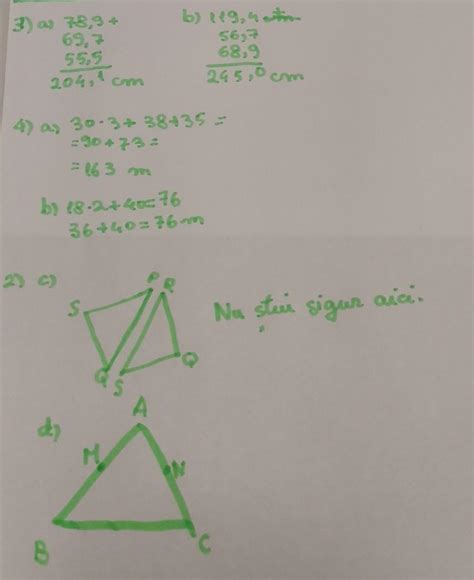 3) a) 78,9 +
69,7
55,5
204,1 cm
b) 119,4 +
56,7
68,9
245,0 cm
4) a) 30·3+38+35=
=90+73=
=163 m
b) 18·2+40=76
36+40=76 m
2) c)
P R
S
Q S Q
Nu știu sigur aici.
d)
A
M N
B C